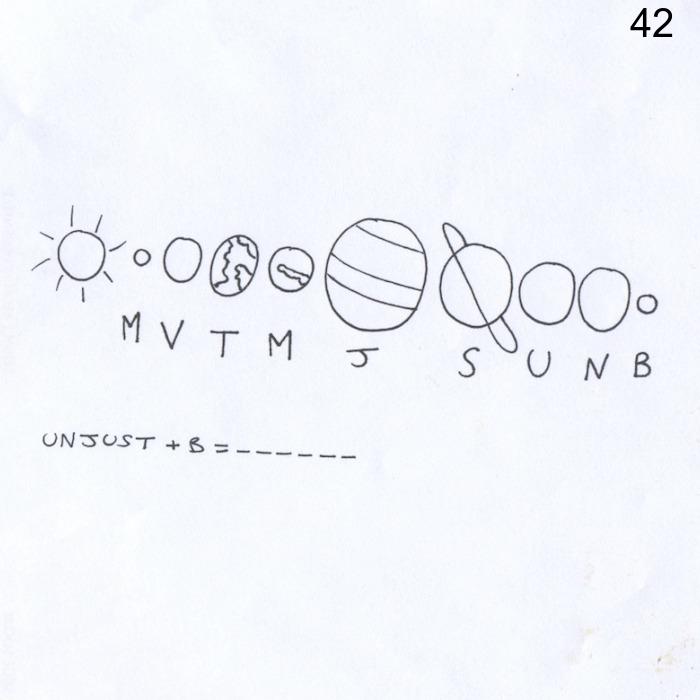 42
M V T M J S U N B
UNJUST + B = _ _ _ _ _ _